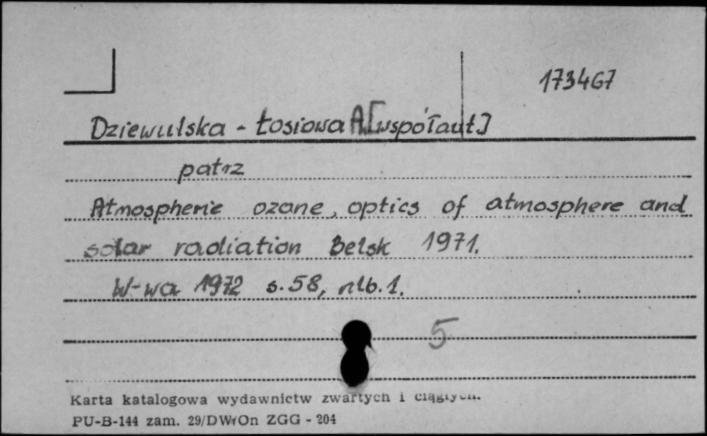 173467
Dziewulska - Łosiowa A. [współaut]
patrz
Atmospheric ozone, optics of atmosphere and
solar radiation Belsk 1971.
W-wa 1972 s. 58, nlb. 1.
5
Karta katalogowa wydawnictw zwartych i ciągłych.
PU-B-144 zam. 29/DWOn ZGG - 204